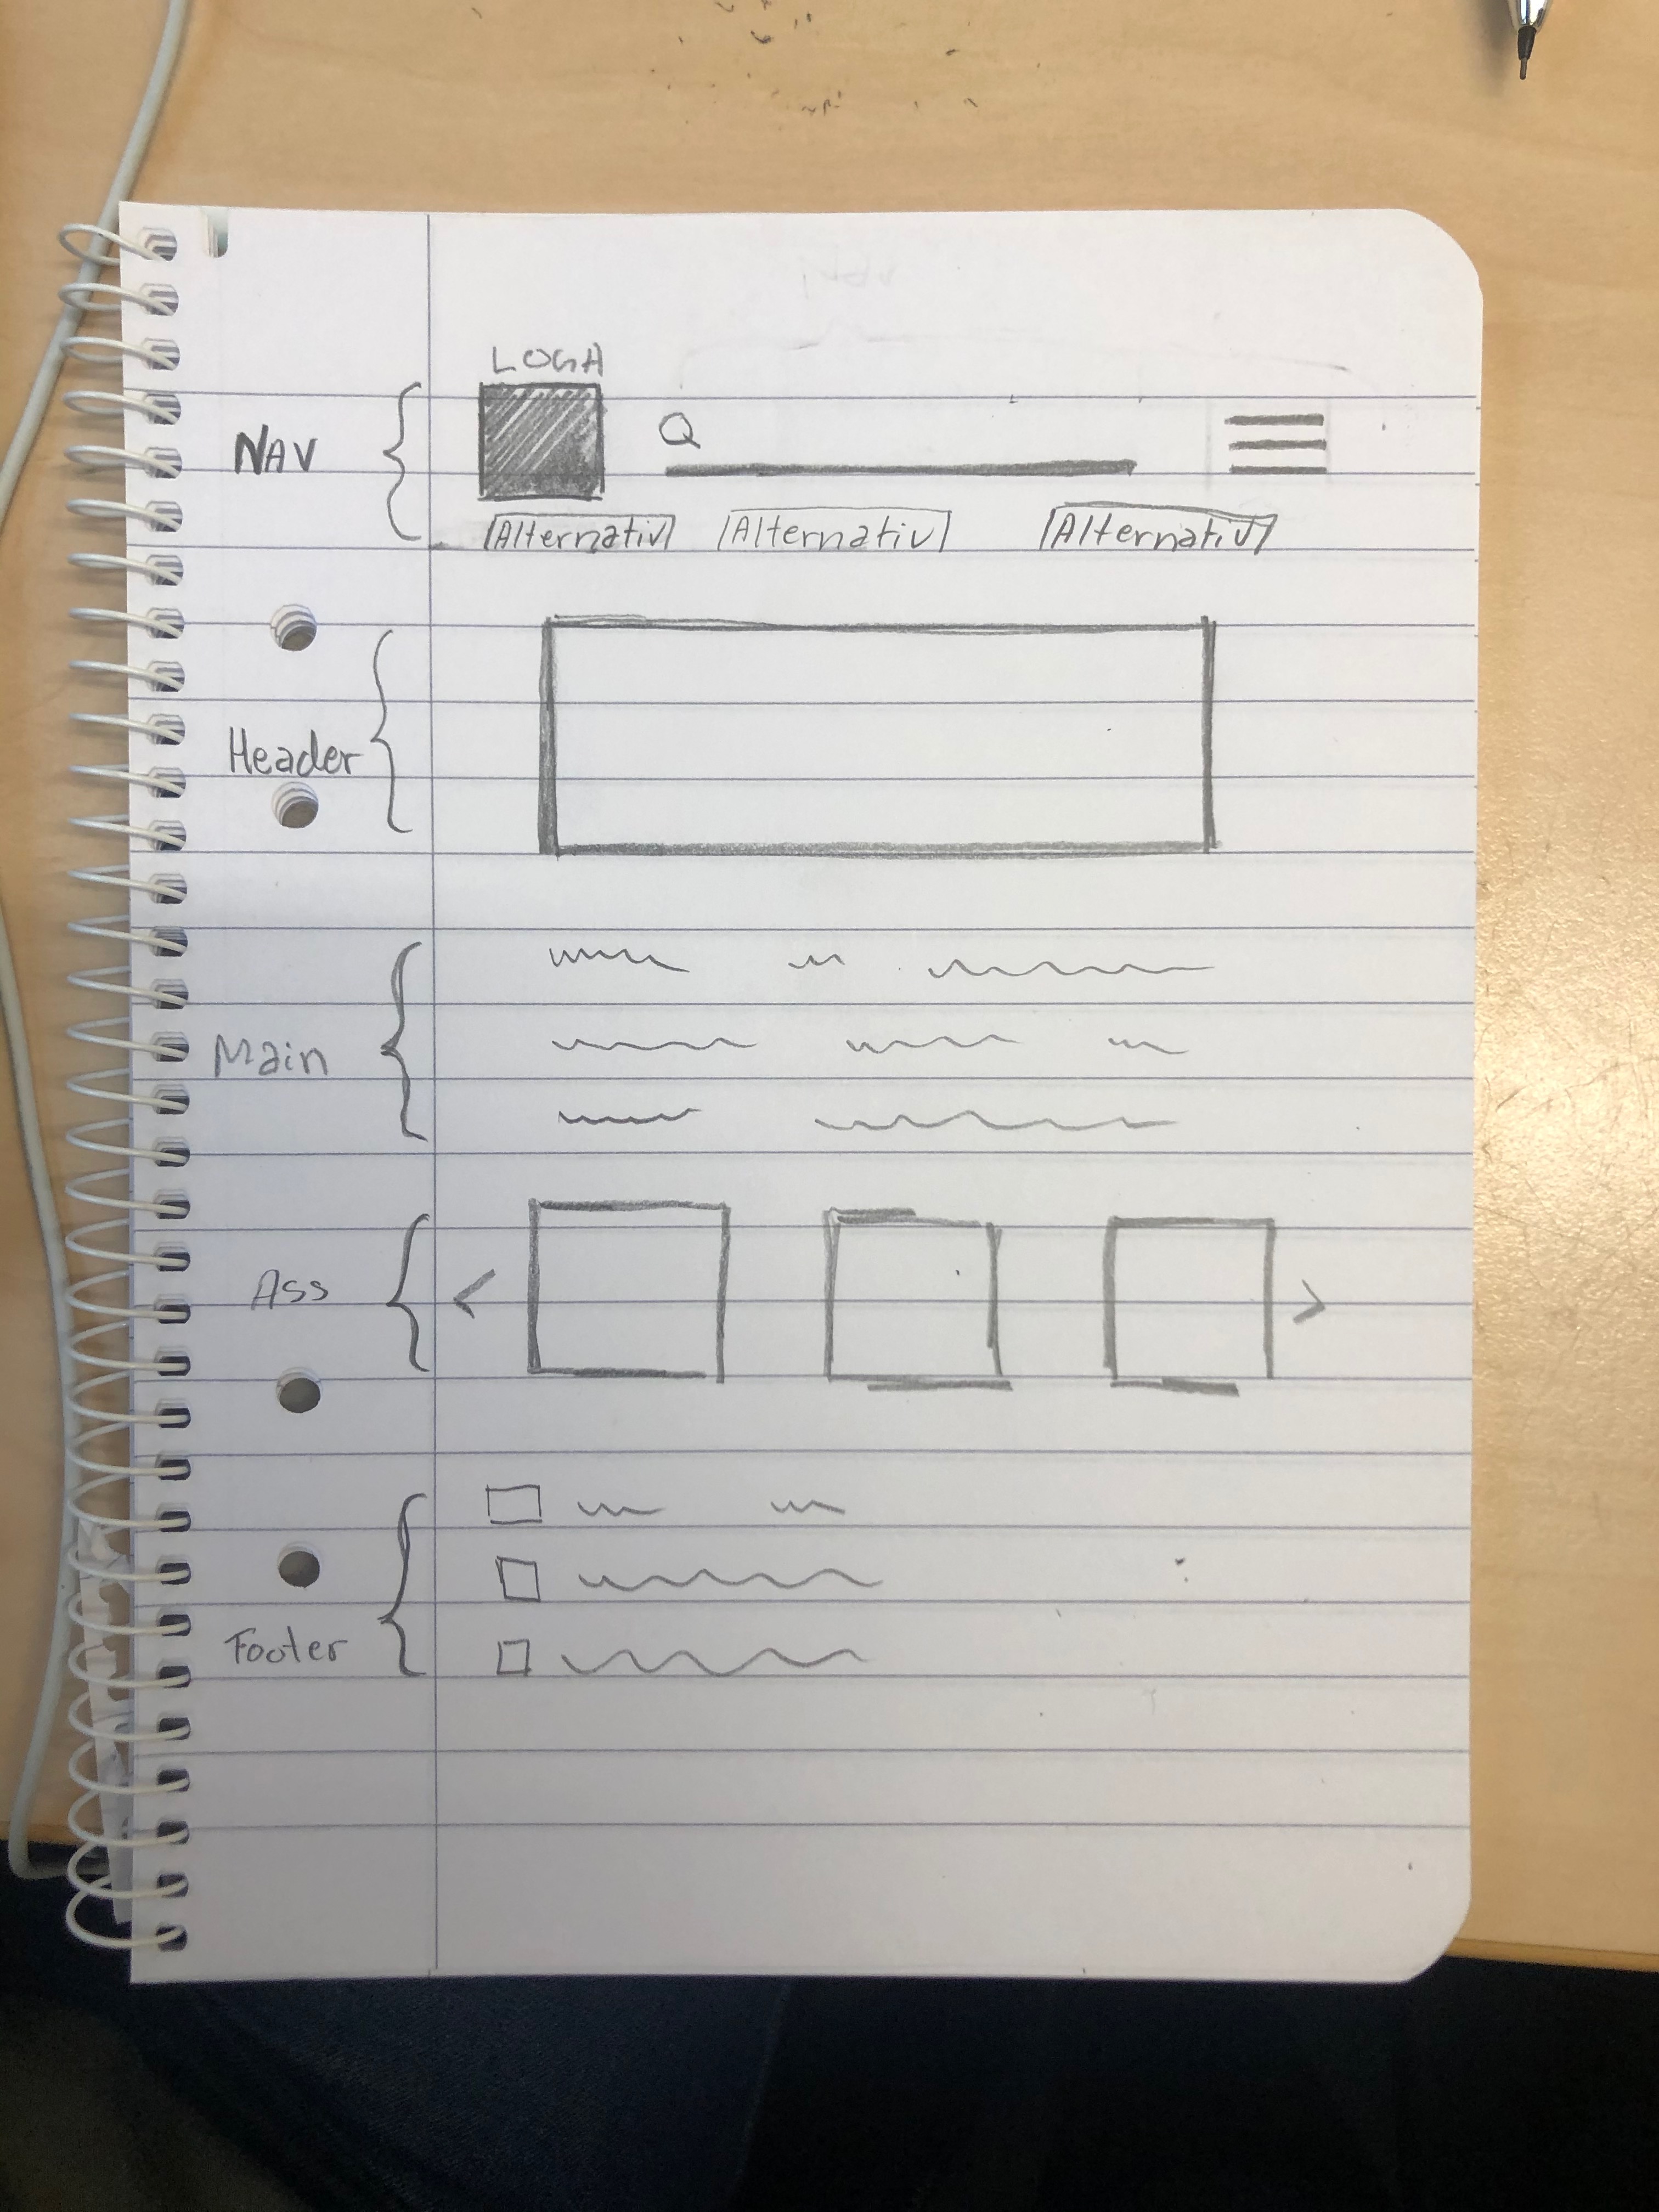 LOGA
NAV
Alternativ Alternativ Alternativ
Header
Main
Ass
Footer